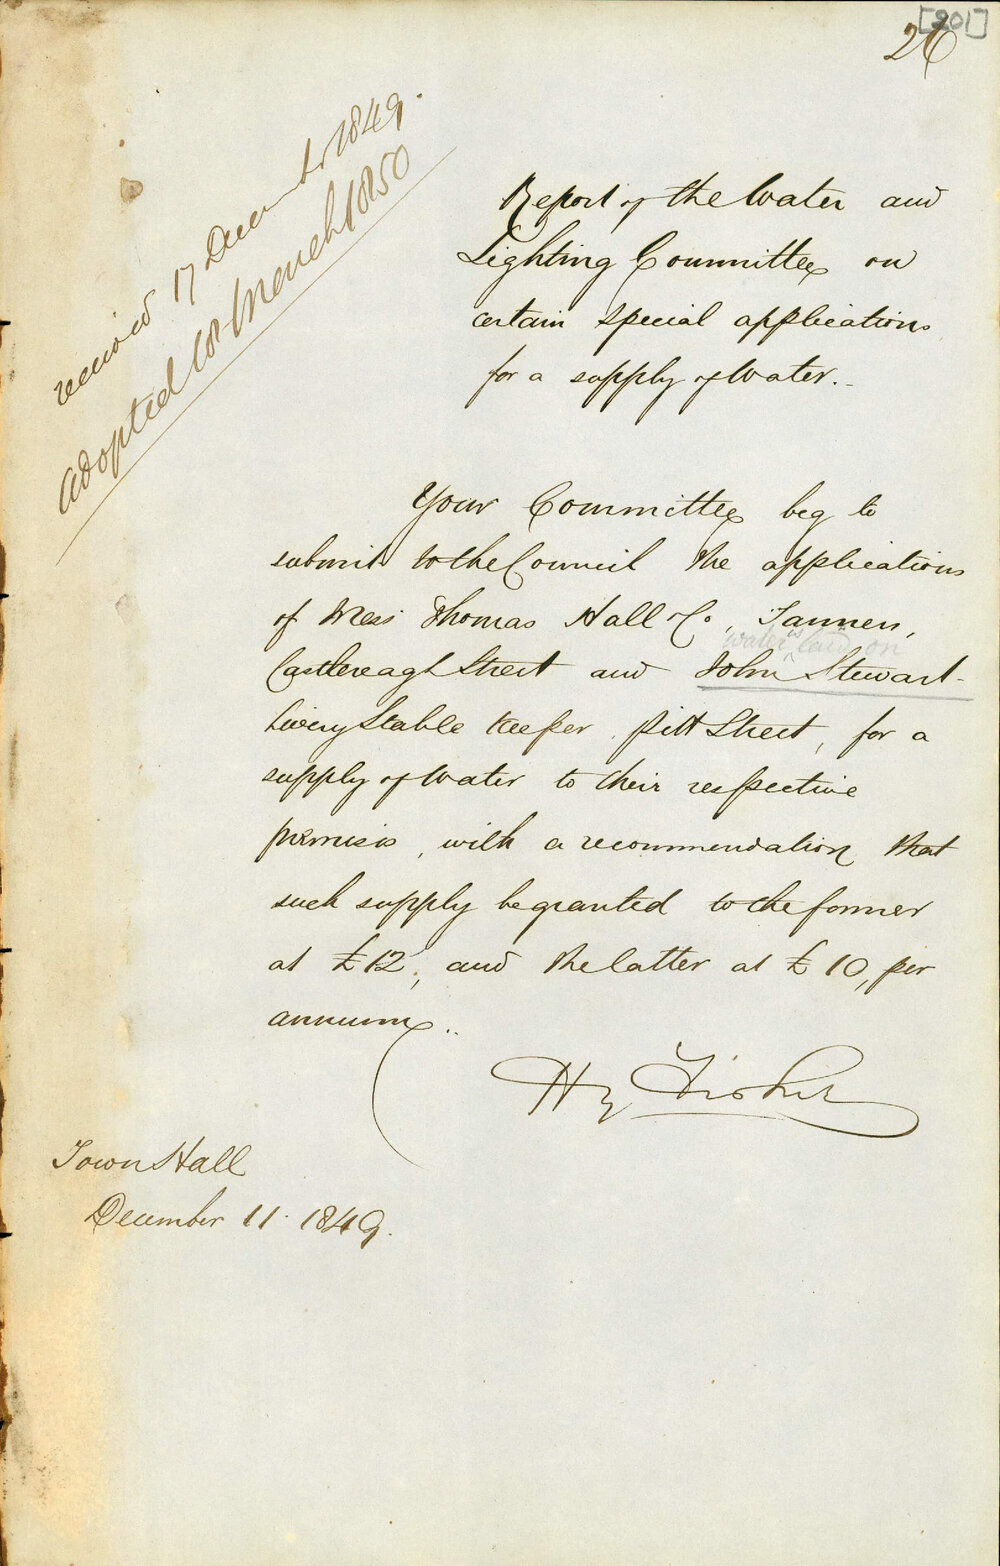 [201]
26
received 17 December 1849.
Adopted 18 March 1850
Report of the Water and
Lighting Committee on
certain special applications
for a supply of Water.
Your Committee beg to
submit to the Council the applications
of Mess Thomas Hall & Co, Tanners,
water is laid on
Castlereagh Street and John Stewart
Livery Stable Keeper Pitt Street, for a
supply of Water to their respective
premises, with a recommendation that
such supply be granted to the former
at £12, and the latter at £10, per
annum..
Hy Fisher
Town Hall
December 11. 1849.